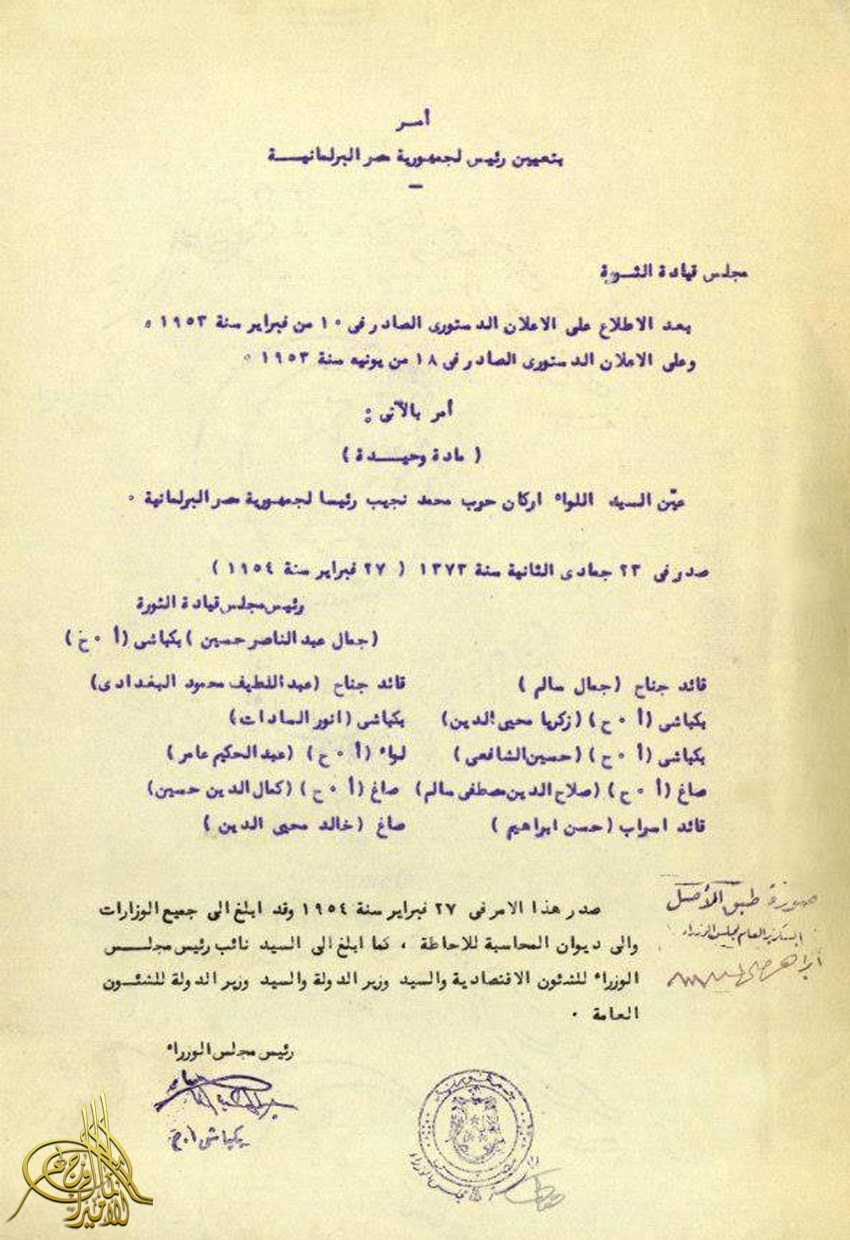 أمـر
بتعيين رئيس لجمهورية مصر البرلمانيـة
مجلس قيادة الثـورة
بعد الاطلاع على الاعلان الدستورى الصادر فى ١٠ من فبراير سنة ١٩٥٣ ،
وعلى الاعلان الدستورى الصادر فى ١٨ من يونيه سنة ١٩٥٣ ،
أمر بالآتى :
( مادة وحيـدة )
عيّن السيد اللواء اركان حرب محمد نجيب رئيسا لجمهورية مصر البرلمانية .
صدر فى ٢٣ جمادى الثانية سنة ١٣٧٣ ( ٢٧ فبراير سنة ١٩٥٤ )
رئيس مجلس قيادة الثورة
(جمال عبد الناصر حسين ) بكباشى (أ . ح )
قائد جناح (جمال سالم ) قائد جناح (عبد اللطيف محمود البغدادى)
بكباشى (أ . ح ) (زكريا محيى الدين) بكباشى (انور السادات)
بكباشى (أ . ح ) (حسين الشافعى ) لواء (أ . ح ) (عبد الحكيم عامر )
صاغ (أ . ح ) (صلاح الدين مصطفى سالم ) صاغ (أ . ح ) (كمال الدين حسين)
قائد اسراب (حسن ابراهيم ) صاغ (خالد محيى الدين )
صدر هذا الامر فى ٢٧ فبراير سنة ١٩٥٤ وقد ابلغ الى جميع الوزارات
والى ديوان المحاسبة للاحاطة ، كما ابلغ الى السيد نائب رئيس مجلـس
الوزراء للشئون الاقتصادية والسيد وزير الدولة والسيد وزير الدولة للشئـون
العامة .
صورة طبق الأصل
السكرتير العام لمجلس الوزراء
رئيس مجلس الوزراء
بكباشى أ.ح
جمهورية
مصر
مجلس الوزراء